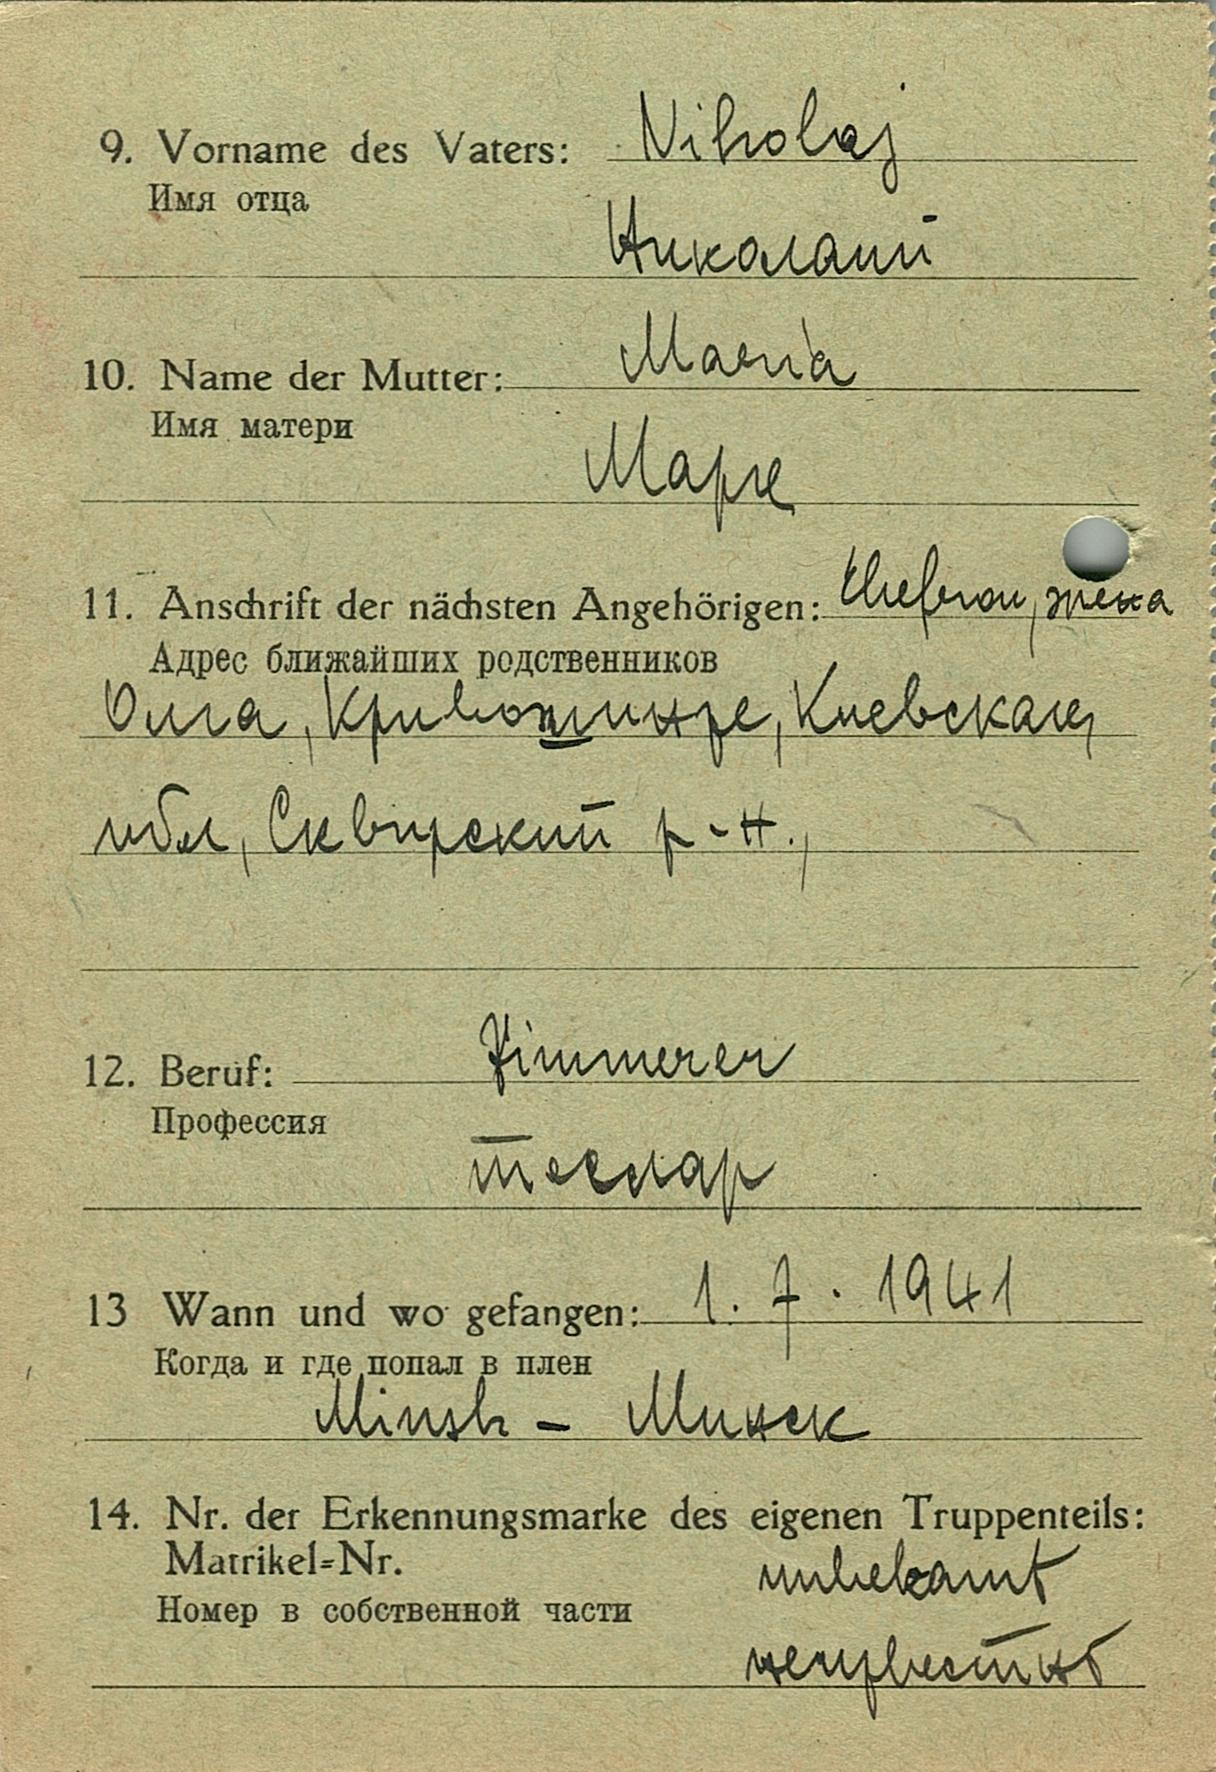 9. Vorname des Vaters: Nikolaj
Имя отца
Николаий
10. Name der Mutter: Maria
Имя матери
Маря
11. Anschrift der nächsten Angehörigen: Ehefrau, жена
Адрес ближайших родственников
Олга, Кривошинре, Киевская
обл, Сквирский р-н.,
12. Beruf: Zimmerer
Профессия
теслар
13 Wann und wo gefangen: 1. 7. 1941
Когда и где попал в плен
Minsk - Минск
14. Nr. der Erkennungsmarke des eigenen Truppenteils:
Matrikel=Nr. unbekannt
Номер в собственной части
неизвестно